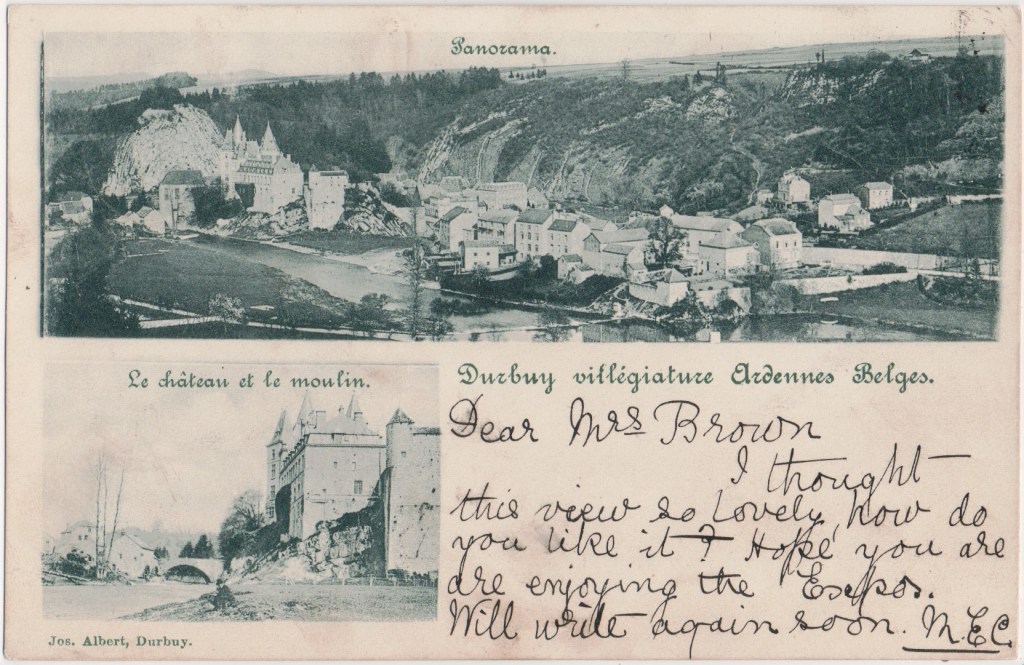 Panorama.
Le château et le moulin.
Durbuy villégiature Ardennes Belges.
Dear Mrs Brown
I thought
this view so lovely, how do
you like it? Hope you are
are enjoying the
Will write again soon. M.E.C.
Jos. Albert, Durbuy.